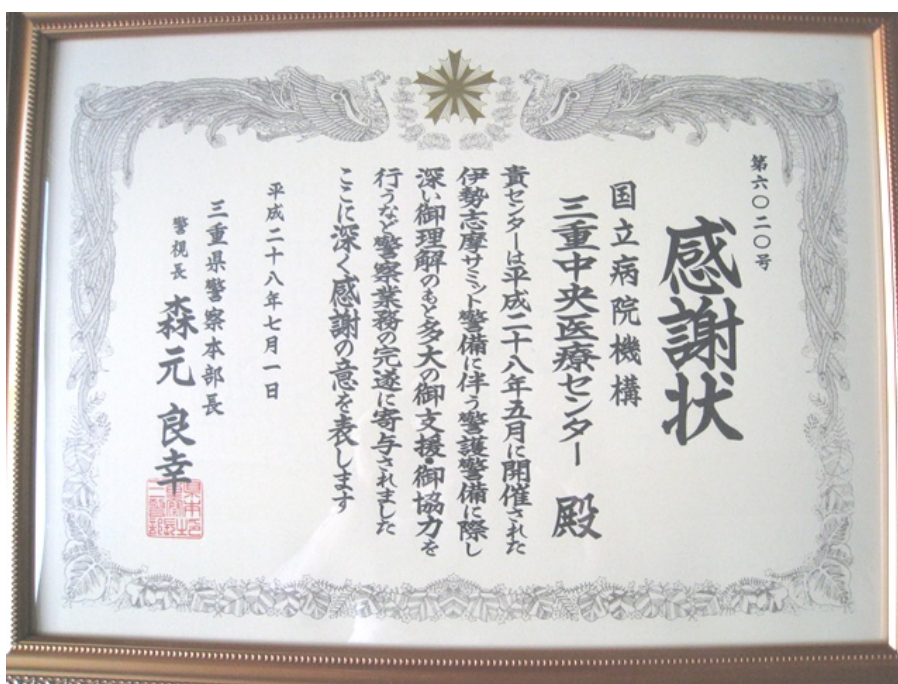 第六〇二〇号
感謝状
国立病院機構
三重中央医療センター 殿
貴センターは平成二十八年五月に開催された
伊勢志摩サミット警備に伴う警護警備に際し
深い御理解のもと多大の御支援・御協力を
行うなど警察業務の完遂に寄与されました
ここに深く感謝の意を表します
平成二十八年七月一日
三重県警察本部長
警視長 森元良幸